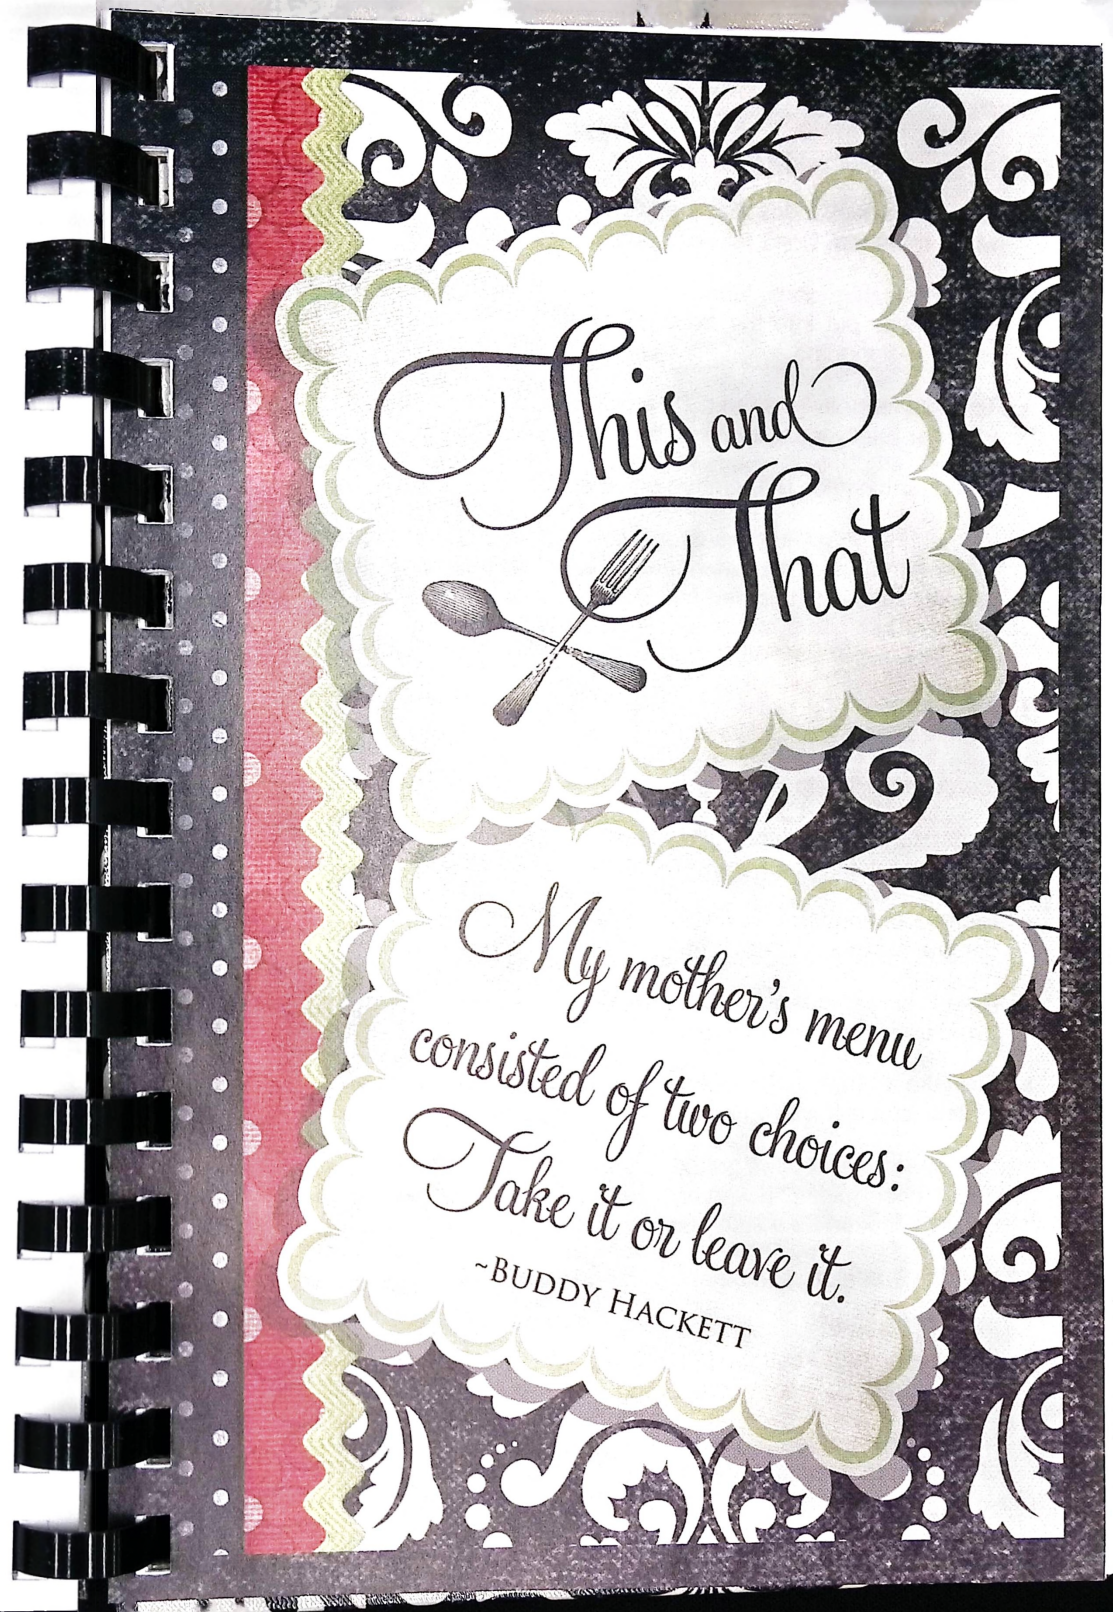 This and
That
My mother's menu
consisted of two choices:
Take it or leave it.
~BUDDY HACKETT